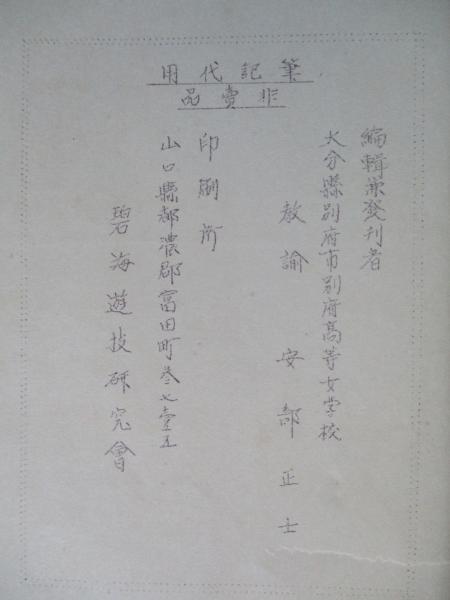 筆記代用
非賣品
編輯兼發刊者
大分縣別府市別府高等女学校
教諭 安部正士
印刷所
山口縣都濃郡富田町参七壹五
碧海遊技研究會